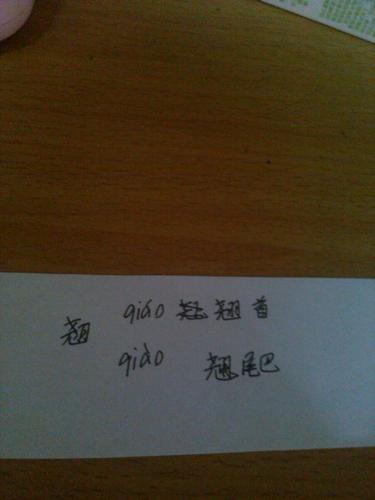 翘
qiáo 翘首
qiào 翘尾巴